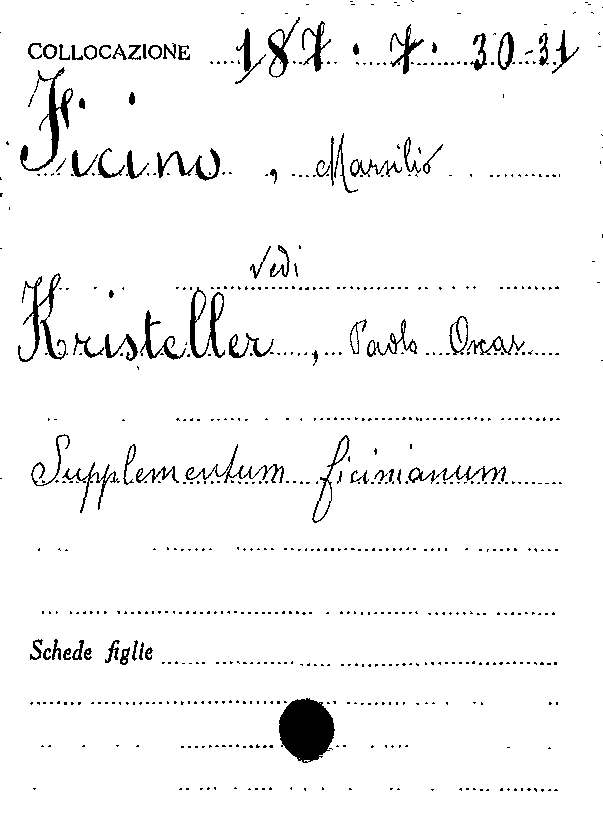 COLLOCAZIONE 187.7.30-31
Ficino, Marsilio
Vedi
Kristeller, Paolo Oscar
Supplementum ficinianum
Schede figlie